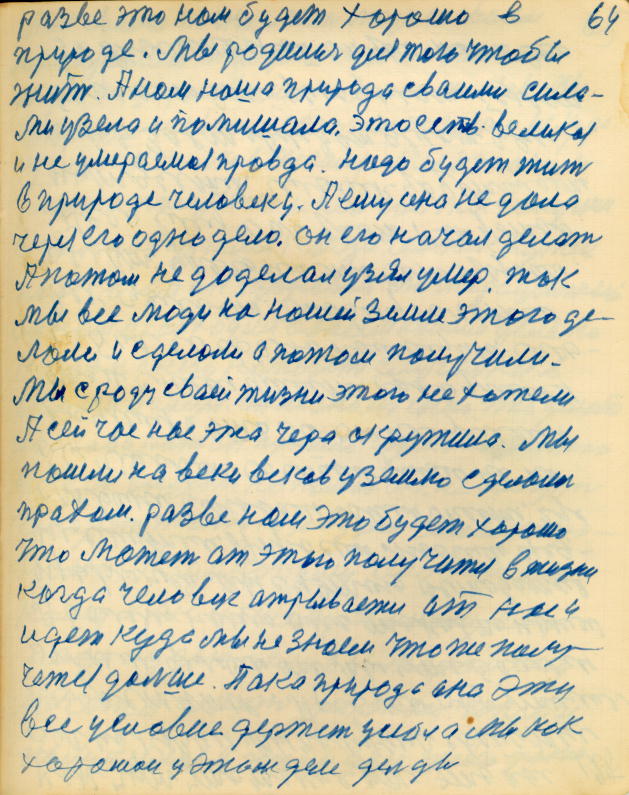 разве это нам будет хорошо в 64
природе. Мы родились для того чтобы
жить. А нам наша природа сваими сила-
ми узела и помишала. это есть великая
и не умераемая правда. надо будет жит
в природе человеку. А ему она не дала
через его одно дело. он его начал делат
А патом не доделал узял умер. так
мы все люди на нашей Земле этого де-
лали и сделали а патом получили-
Мы сроду сваей жизни этого не хатели
А сейчас нас эта чера окружила. Мы
пошли на веки веков уземлю сделали
прахом. разве нам это будет хорошо
что может ат этого получится в жизни
когда человек атрывается ат нас и
идет куда мы не знаем что же полу-
чится дальше. Пака природа она эти
все условие держит усебя а мы как